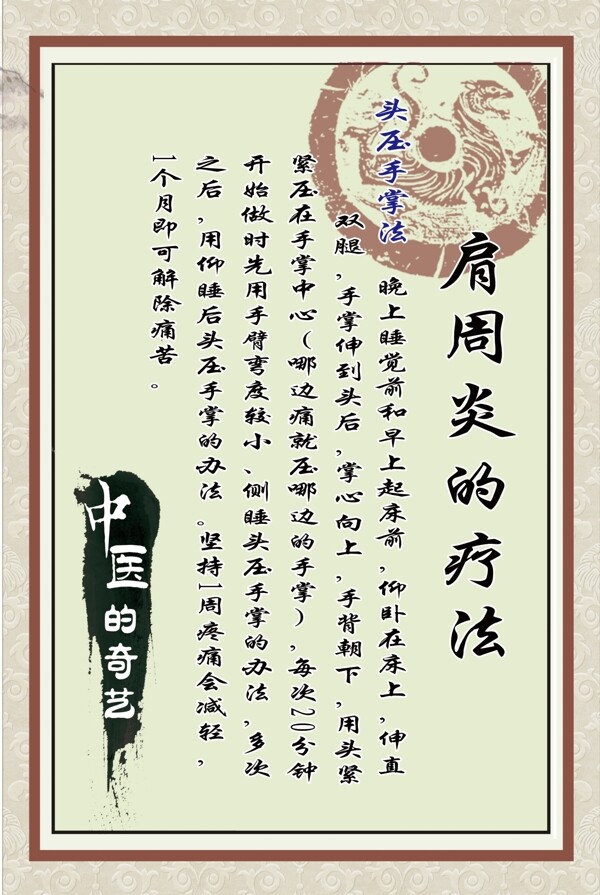 肩周炎的疗法
头压手掌法
晚上睡觉前和早上起床前,仰卧在床上,伸直
双腿,手掌伸到头后,掌心向上,手背朝下,用头紧
紧压在手掌中心(哪边痛就压哪边的手掌),每次20分钟
开始做时先用手臂弯度较小、侧睡头压手掌的办法,多次
之后,用仰睡后头压手掌的办法。坚持1周疼痛会减轻,
1个月即可解除痛苦。
中医的奇艺